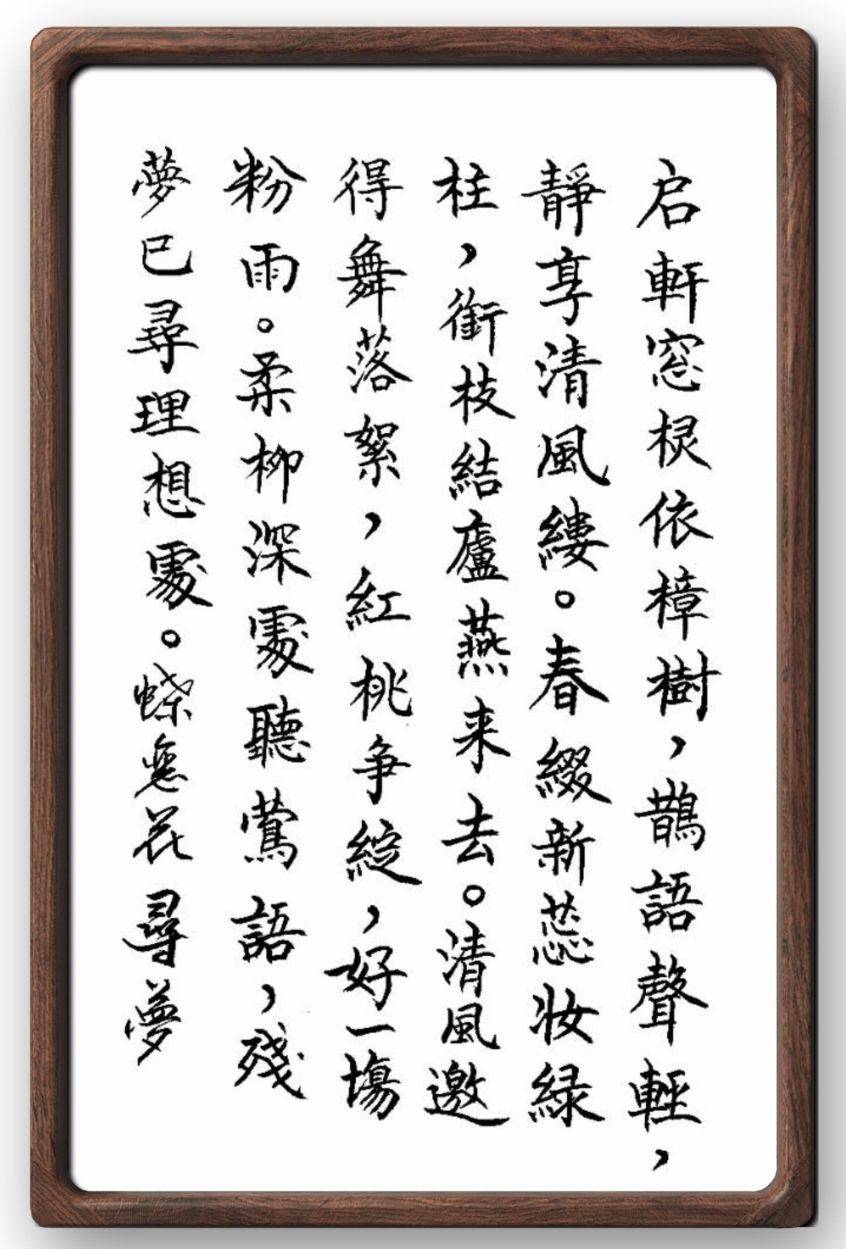 启軒窓棂依樟樹，鵲語聲輕，
靜享清風縷。春綴新蕊妝緑
柱，銜枝結廬燕来去。清風邀
得舞落絮，紅桃争綻，好一場
粉雨。柔柳深處聽鶯語，殘
夢已尋理想處。蝶戀花尋夢